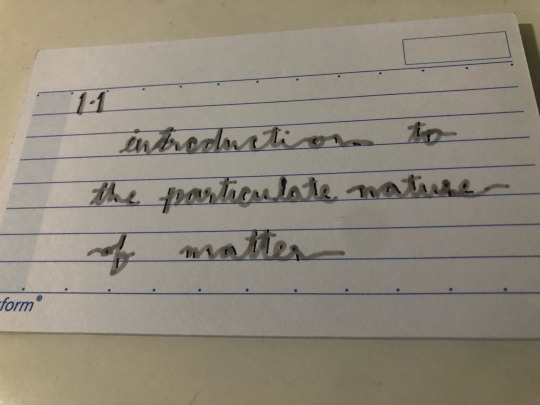 1.1
introduction to
the particulate nature
of matter
form®